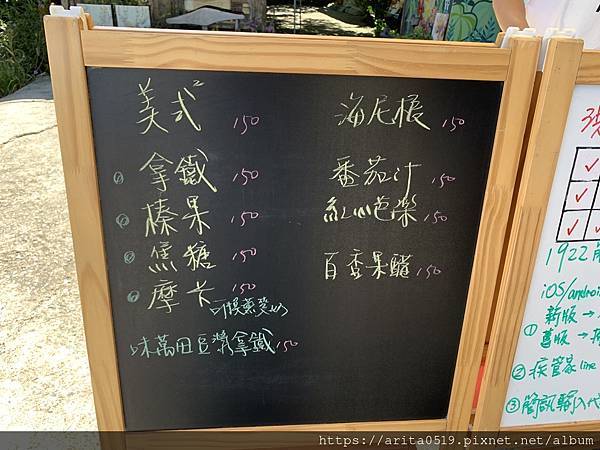 美式 150
拿鐵 150
榛果 150
焦糖 150
摩卡 150
可換燕麥奶
味萬田豆漿拿鐵 150
海尼根 150
番茄汁 150
紅心芭樂 150
百香果醋 150
1922
iOS/android
新版→
① 舊版→
② 疾管家 line
③ 簡訊輸入代
https://arita0519.pixnet.net/album